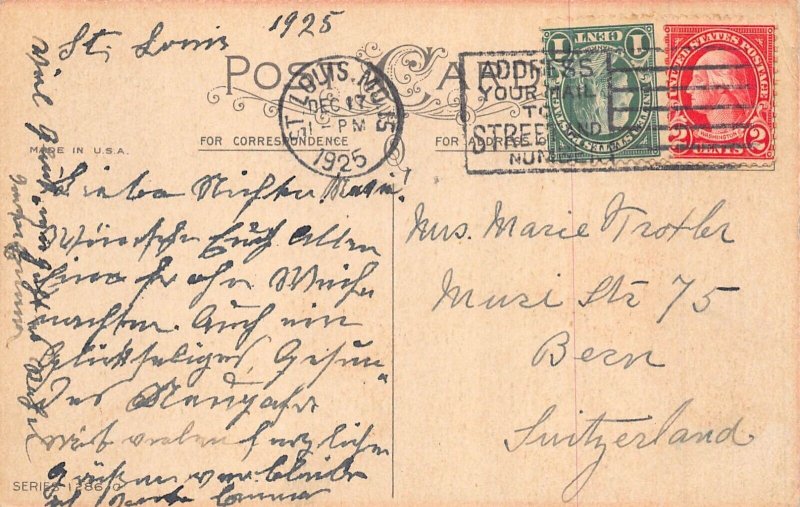 St. Louis 1925
POST CARD
ST. LOUIS, MO.
DEC 17
PM
1925
ADDRESS
YOUR MAIL
TO
STREET AND
NUMBER
CENT
1 1
UNITED STATES POSTAGE
WASHINGTON
2 CENTS 2
MADE IN U.S.A.
FOR CORRESPONDENCE
FOR ADDRESS
Liebe Nichte Marie!
Wünsche Euch Allen
eine frohe Weih
nachten. Auch ein
glückseliges, Gesun
des Neujahr
Mit vielen herzlichen
Grüßen verbleibe
ich Emma
Mrs. Marie Troxler
Muri Str 75
Bern
Switzerland
SERIES